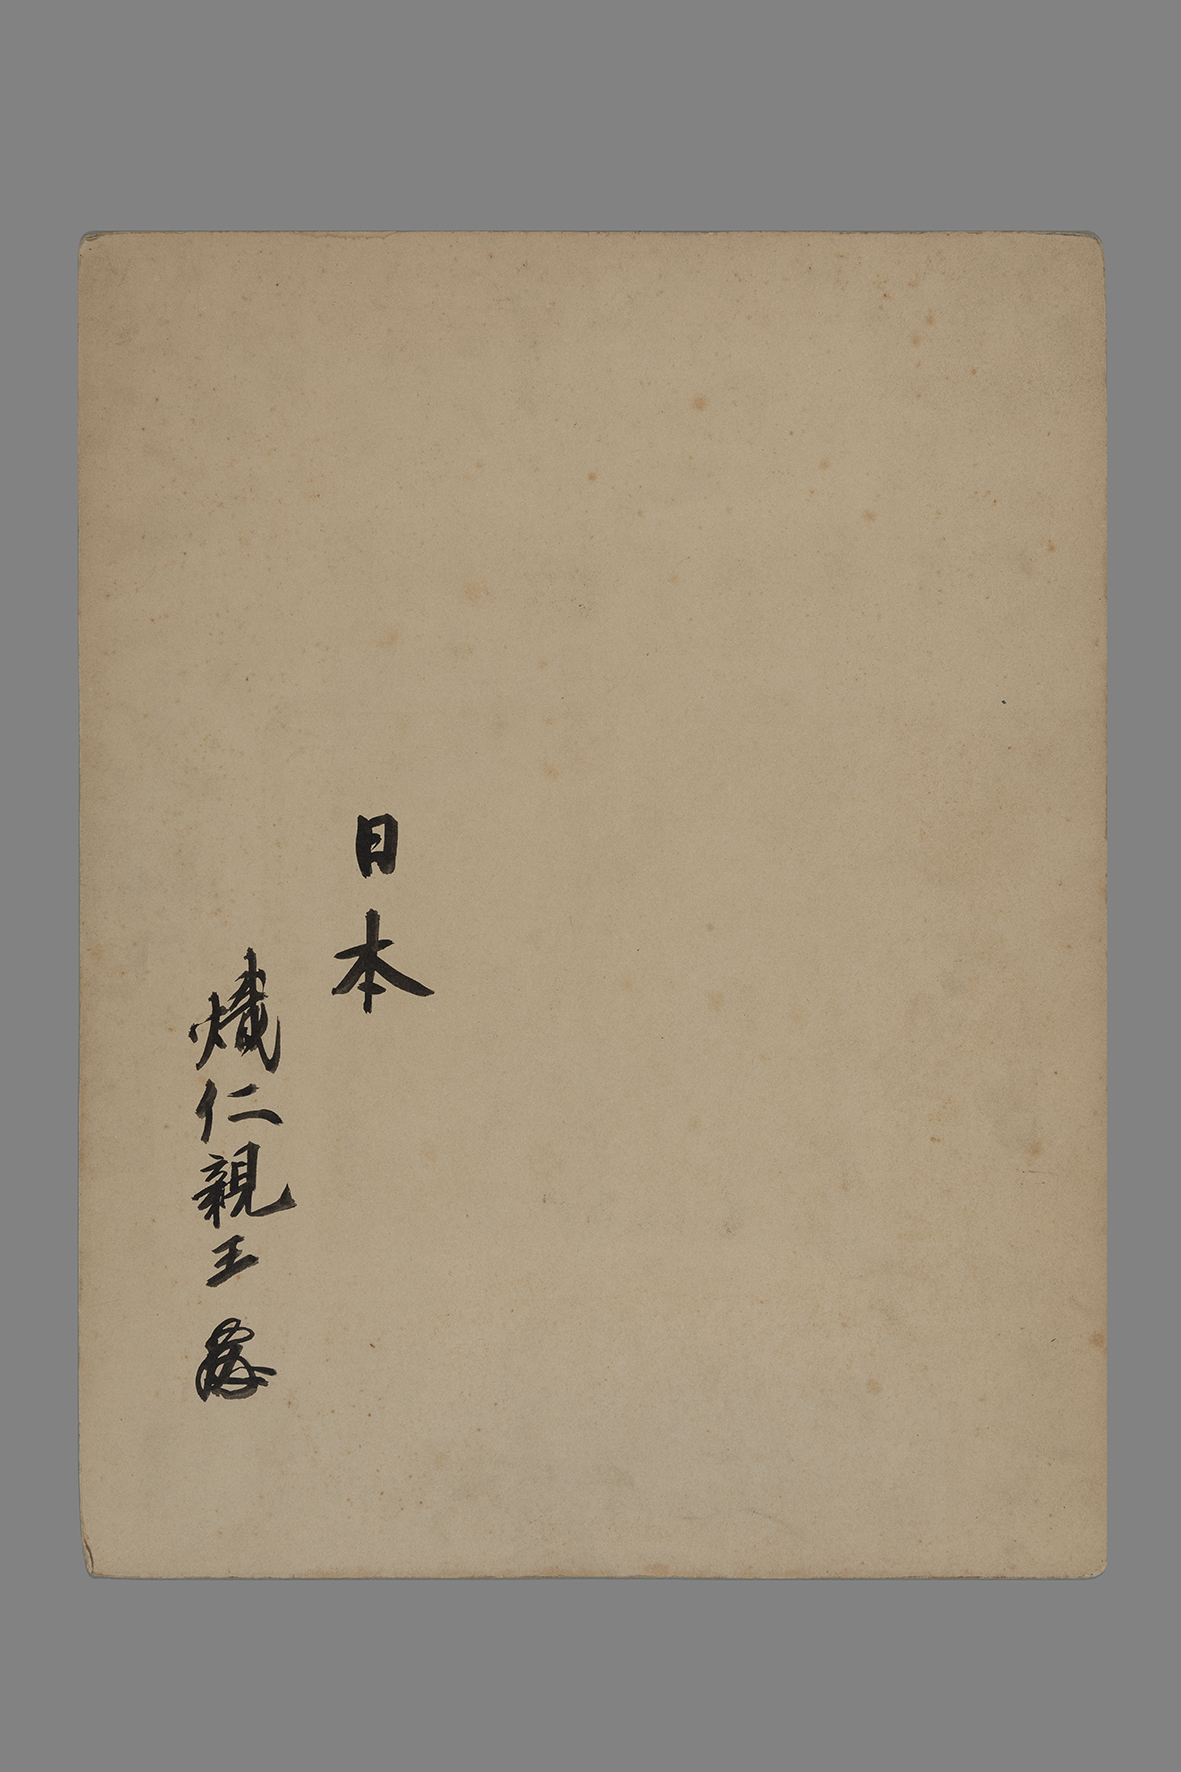 日本
熾仁親王